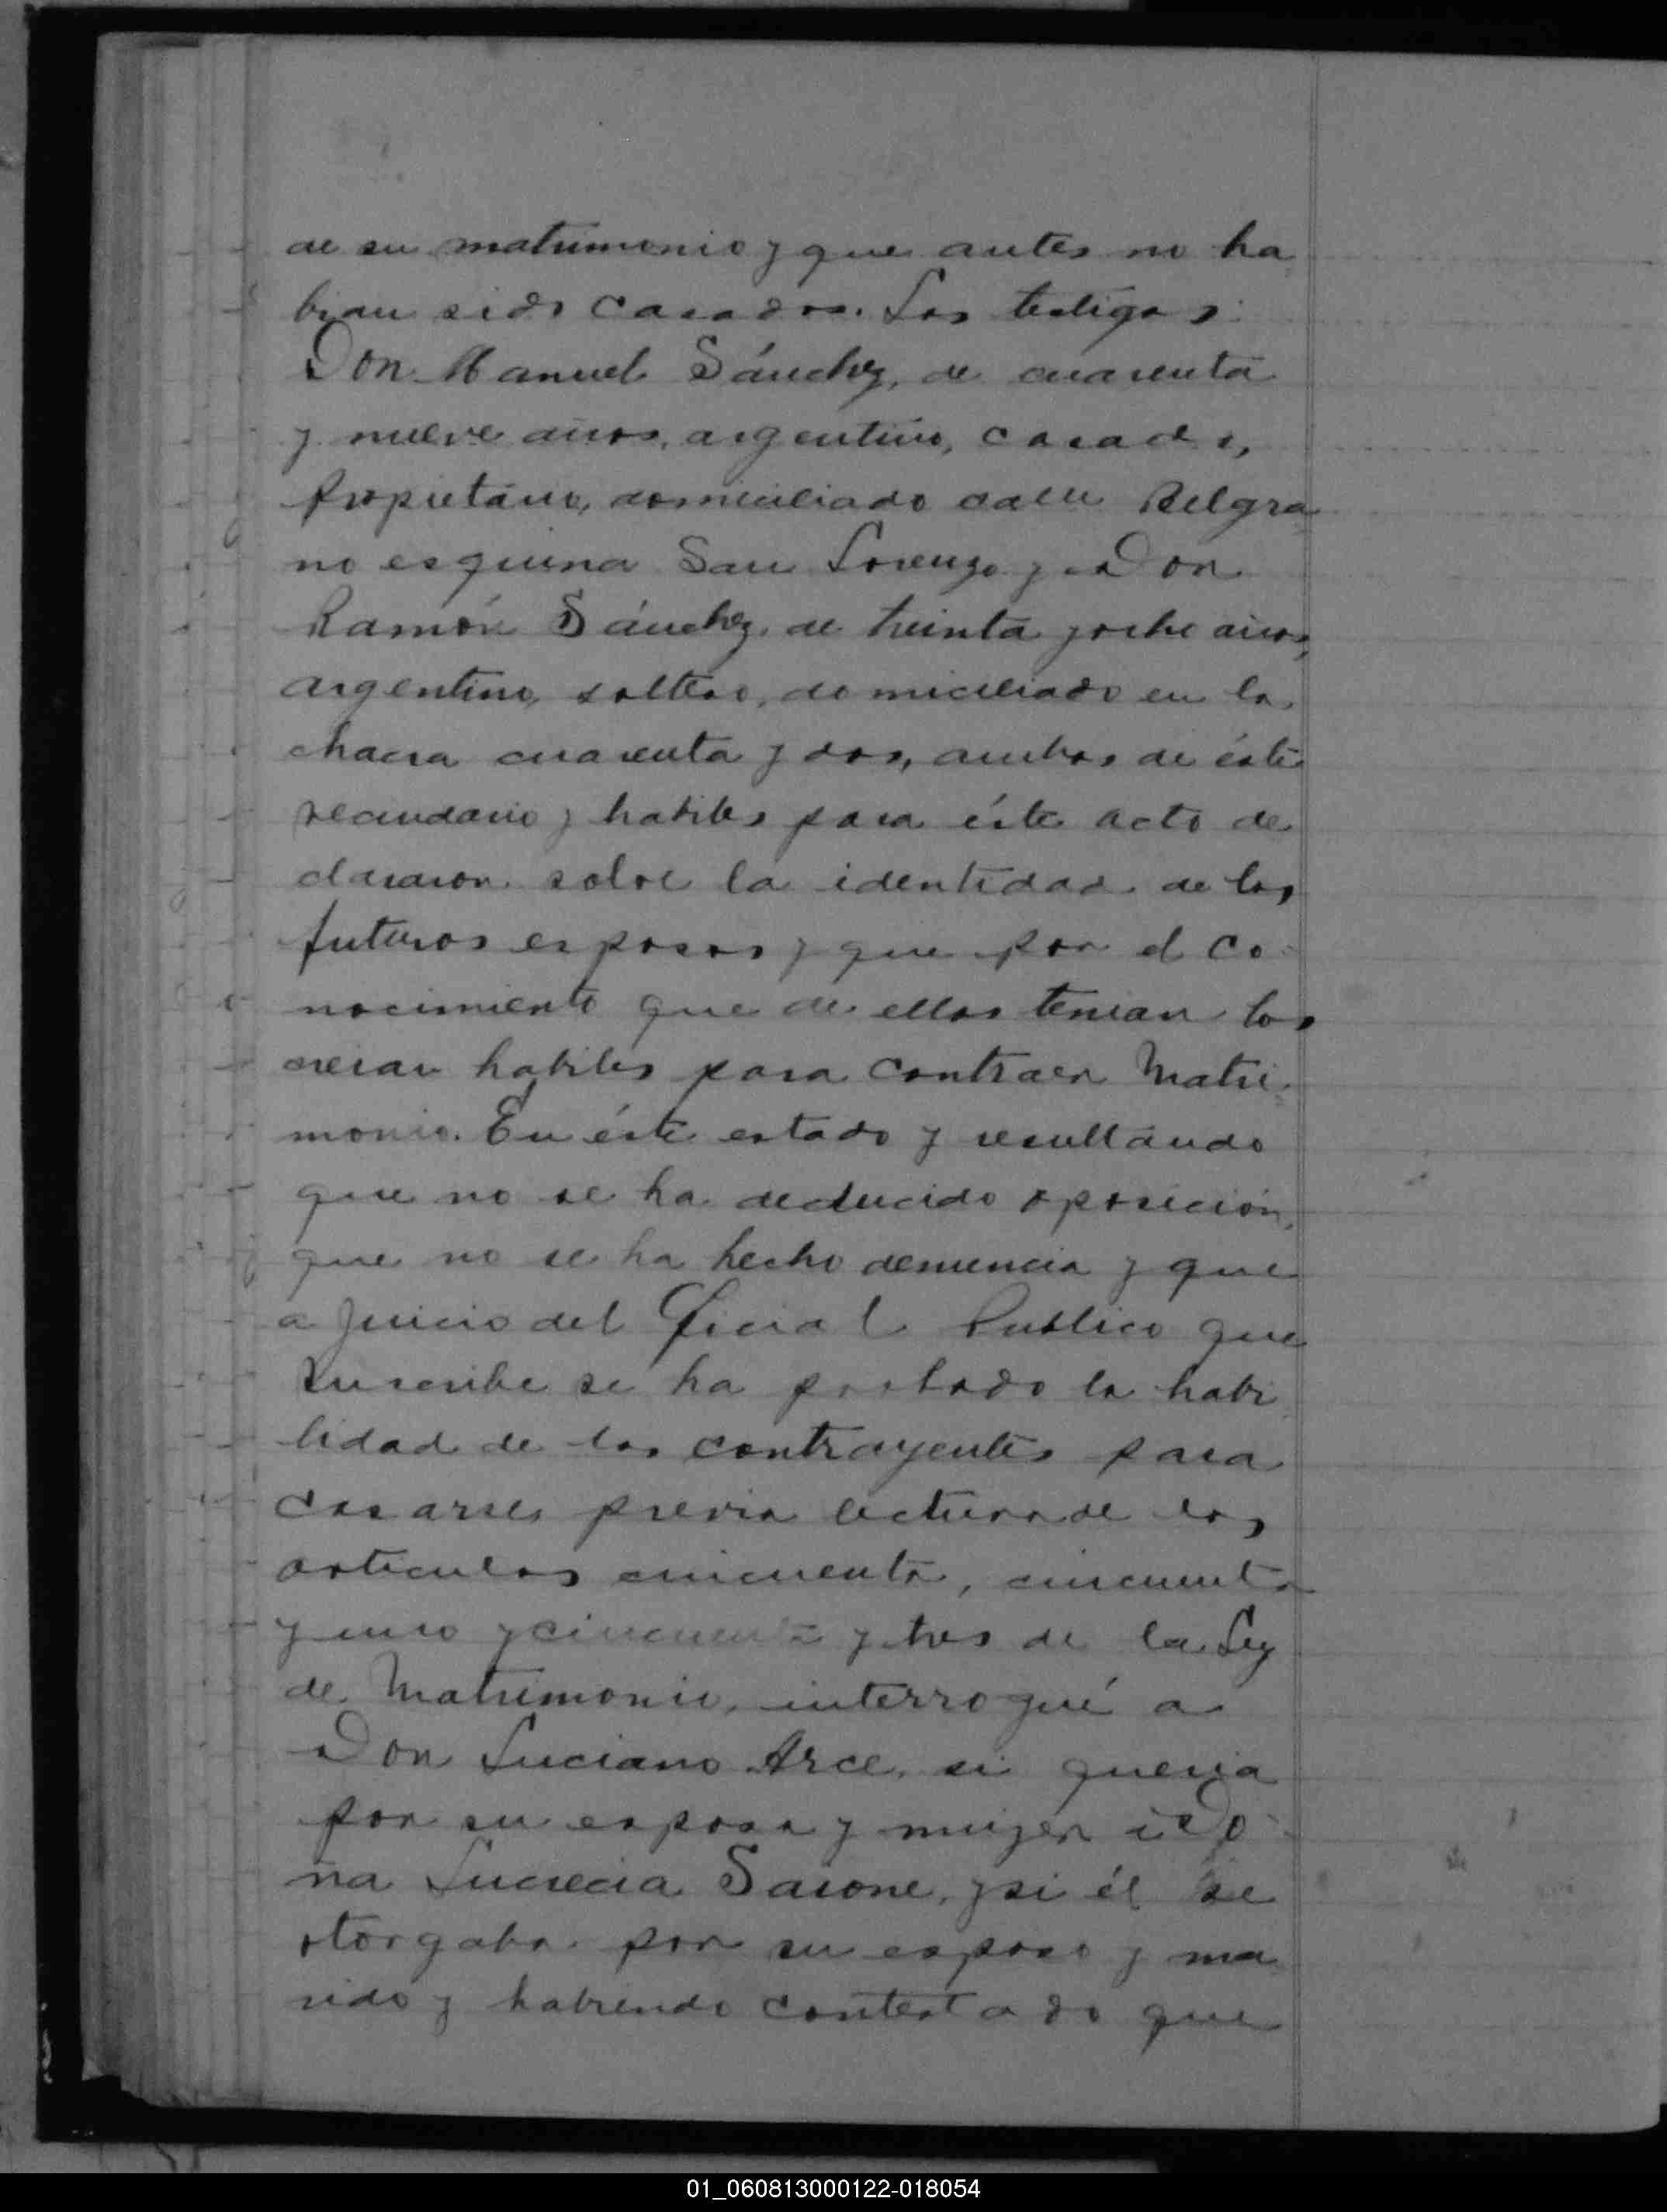 de su matrimonio y que antes no ha
bian sido casados. Los testigos:
Don Manuel Sánchez, de cuarenta
y nueve años, argentino, casado,
propietario, domiciliado calle Belgra
no esquina San Lorenzo y Don
Ramón Sánchez, de treinta y ocho años,
argentino, soltero, domiciliado en la
chacra cuarenta y dos, ambos de éste
vecindario y habiles para éste acto de
clararon sobre la identidad de los
futuros esposos y que por el co-
nocimiento que de ellos tenian los
creian habiles para contraer Matri-
monio. En éste estado y resultando
que no se ha deducido oposición,
que no se ha hecho denuncia y que
a juicio del Oficial Publico que
suscribe se ha probado la habi
lidad de los contrayentes para
casarse, previa lectura de los
articulos cincuenta, cincuenta
y uno y cincuenta y tres de la Ley
de Matrimonio, interrogué a
Don Luciano Arce, si queria
por su esposa y mujer a Do-
ña Lucrecia Sarone, y si él se
otorgaba por su esposo y ma
rido y habiendo contestado que
01_060813000122-018054